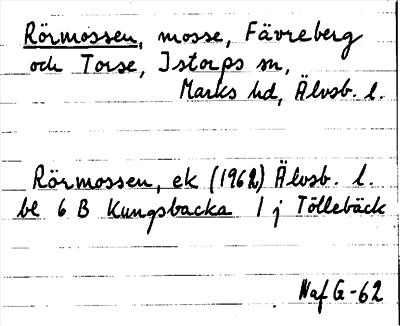 Rörmossen, mosse, Fävreberg
och Torse, Istorps sn,
Marks hd, Älvsb. l.
Rörmossen, ek (1962) Älvsb. l.
bl 6 B Kungsbacka 1 j Töllebäck
Naf G-62